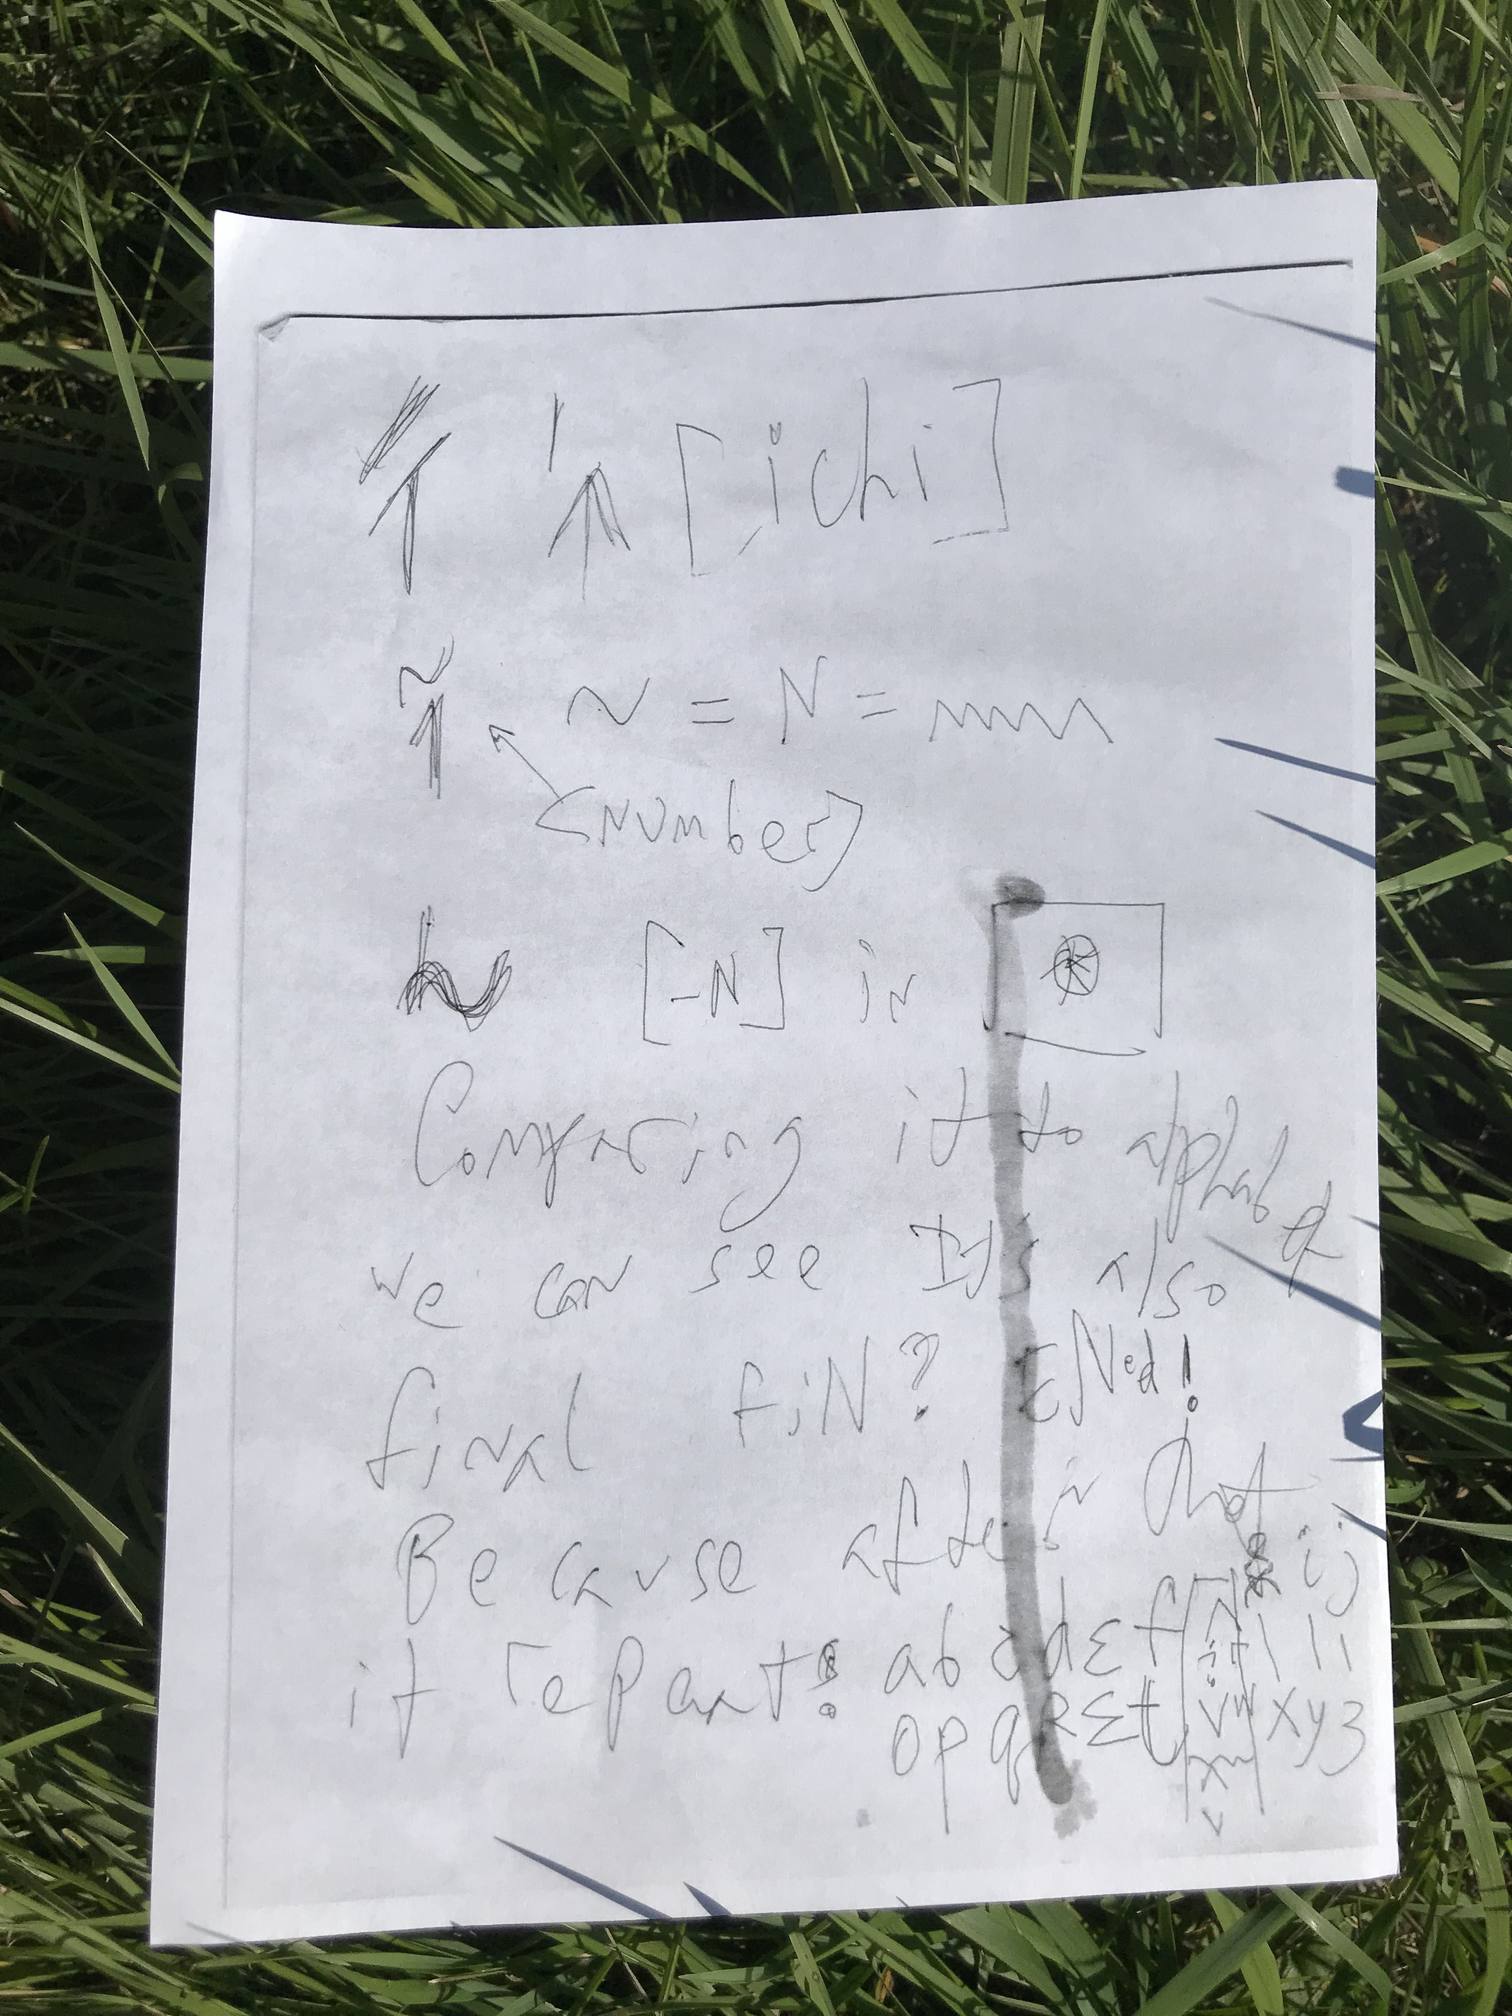 [ichi]
~ = N =
<number]
[-N] in
Comparing it to alphabet
we can see It's also
final fiN? ENed!
Because after in that
it repeart:
ij
abcdεf
opqRΣt xyz